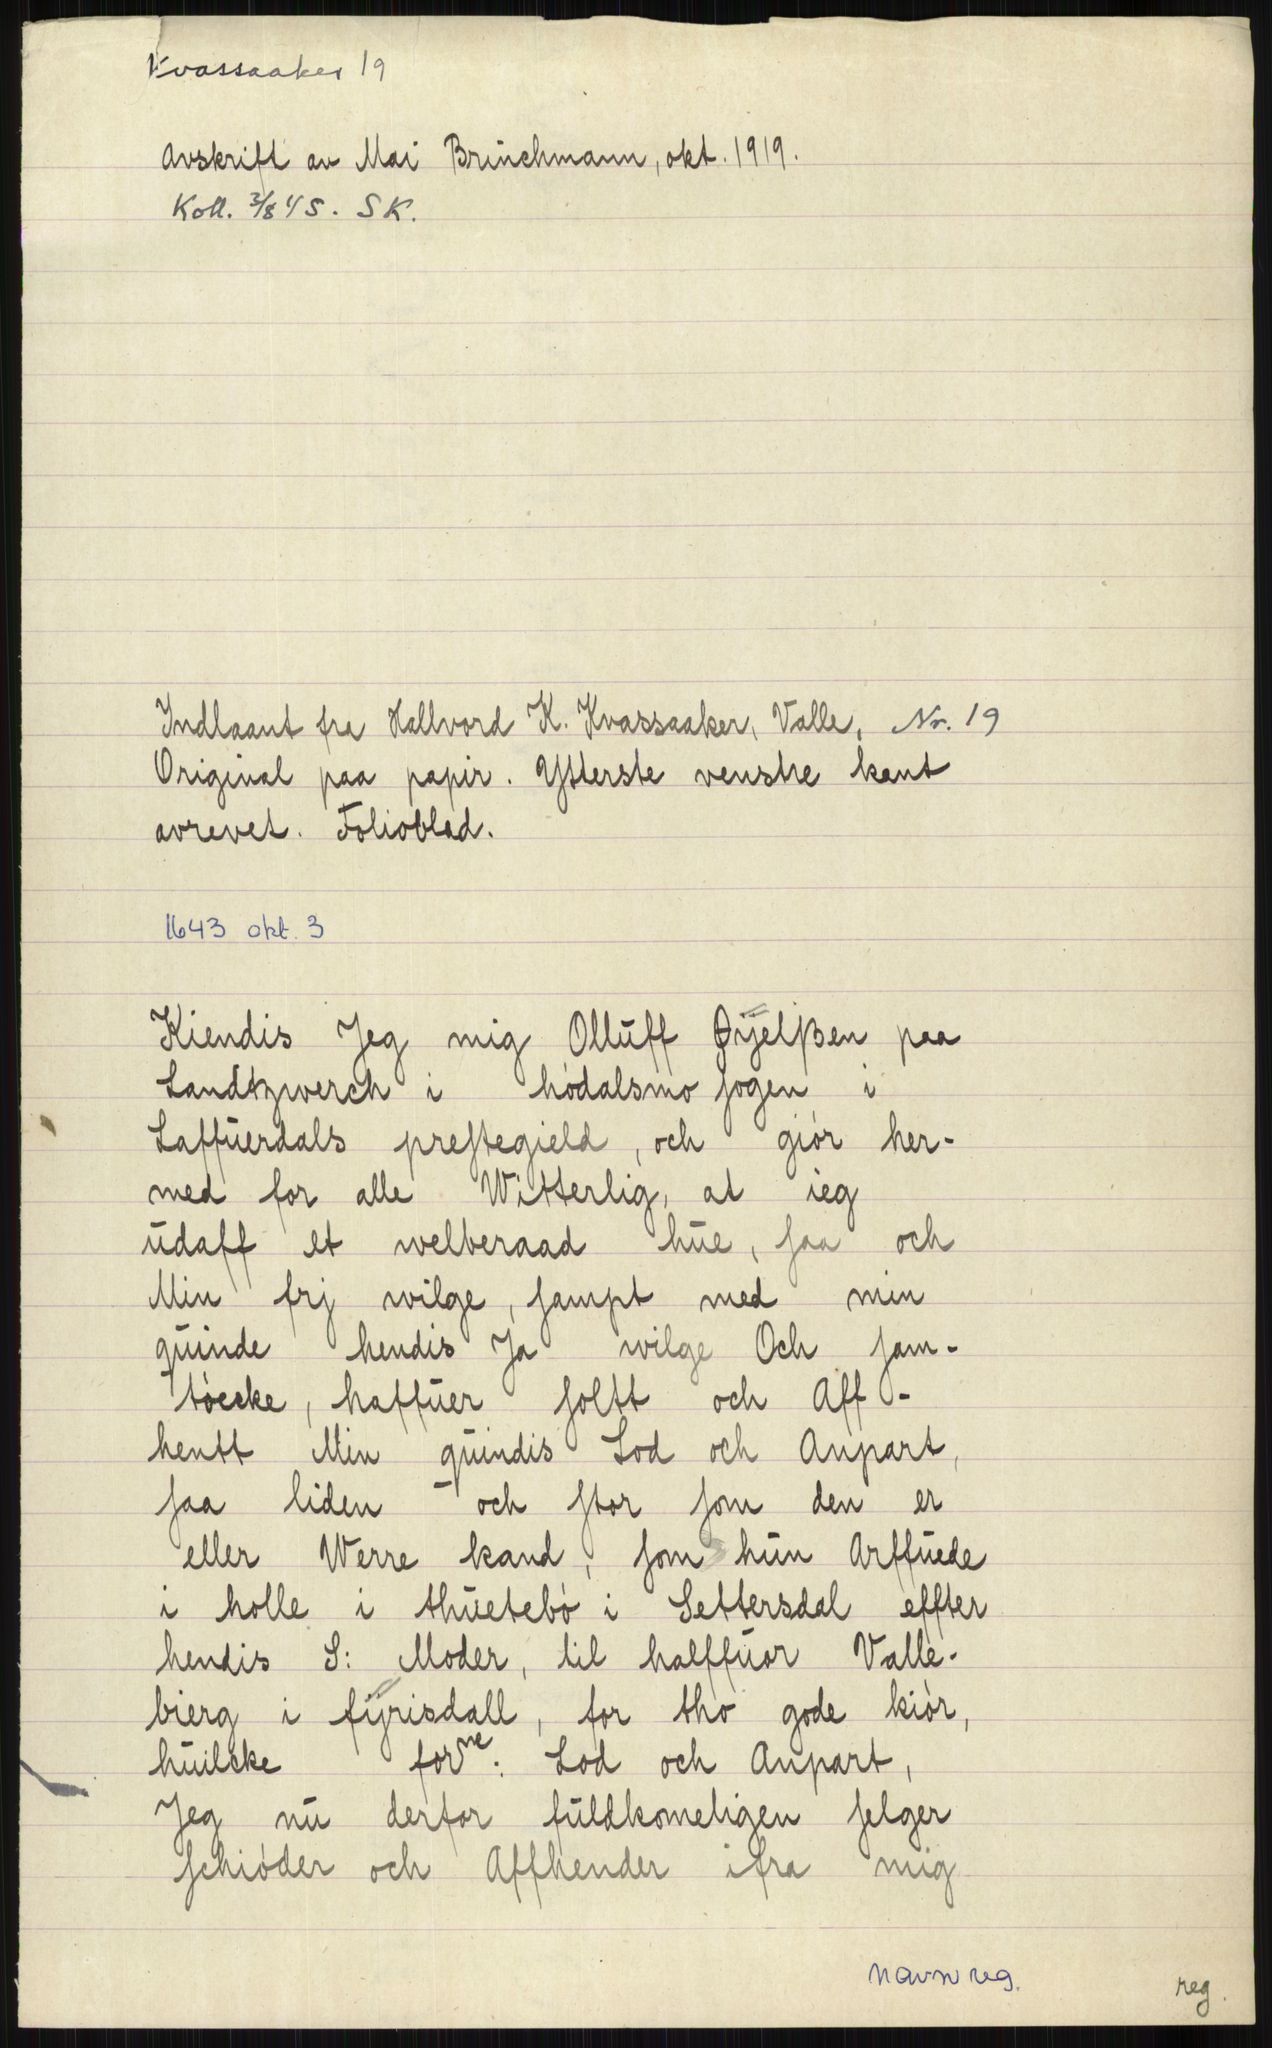 Kvassaaker 19
Avskrift av Mai Brinchmann, okt. 1919.
Koll. 3/8 45. SK.
Indlaant fra Hallvord K. Kvassaaker, Valle. Nr. 19
Original paa papir. Ytterste venstre kant
avrevet. Folioblad.
1643 okt. 3
Kiendis Jeg mig Olluff Øÿelßen paa
Landtzwerch i hódalsmo ſogen i
Laffuerdals preſtegield, och giór her-
med for alle Witterlig, at ieg
udaff et welberaad hue, ſaa och
Min frj wilge, ſampt med min
quinde hendis Ja wilge Och ſam-
tóecke, haffuer ſoltt och Aff-
hentt Min quindis Lod och Anpart,
ſaa liden och ſtor ſom den er
eller Werre kand, ſom hun Arffuede
i holle i thuetebó i Settersdal effter
hendis S: Moder, til halffuor Valle-
bierg i fÿrisdall, for tho gode kiór,
huilcke forne: Lod och Anpart,
Jeg nu derfor fuldkomeligen ſelger
ſchióder och Affhender ifra mig
navnreg.
reg.